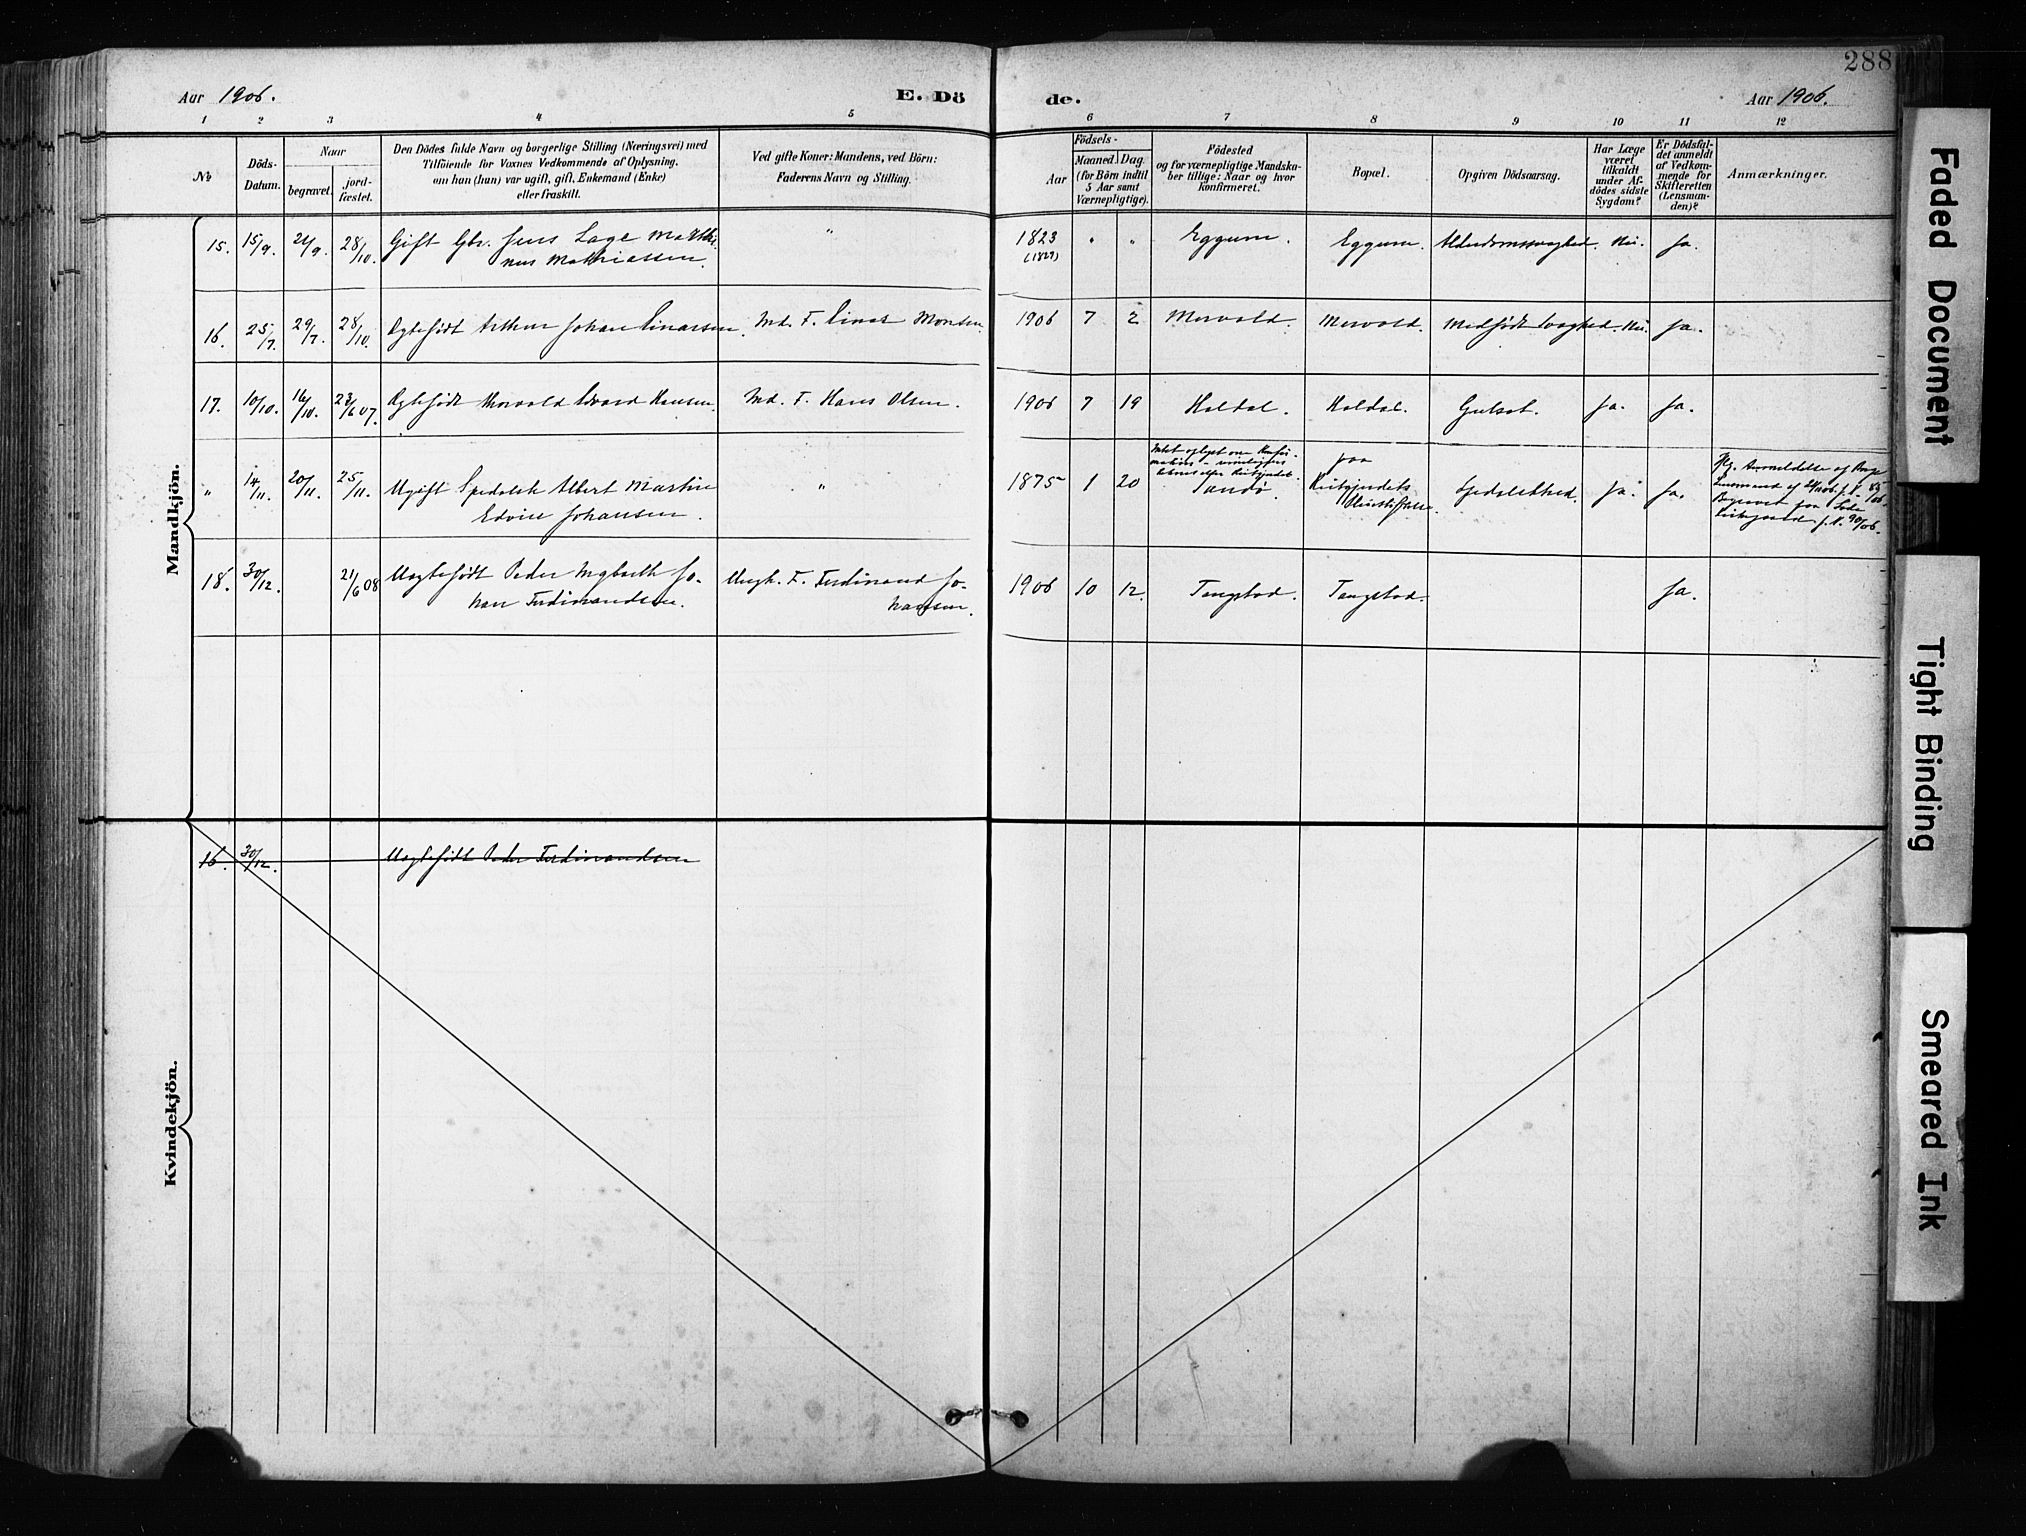 288
Aar 1906.
E. Dö
de.
Aar 1906.
1 2 3 4 5 6 7 8 9 10 11 12
No
Döds-
Datum.
Naar
begravet.
jord-
fæstet.
Den Dödes fulde Navn og borgerlige Stilling (Næringsvei) med
Tilföiende for Voxnes Vedkommende af Oplysning,
om han (hun) var ugift, gift, Enkemand (Enke)
eller fraskilt.
Ved gifte Koner: Mandens, ved Börn:
Faderens Navn og Stilling.
Aar
Födsels-
Maaned. Dag.
(for Börn indtil
5 Aar samt
Værnepligtige).
Födested
og for værnepligtige Mandska-
ber tillige: Naar og hvor
konfirmeret.
Bopæl.
Opgiven Dödsaarsag.
Har Læge
været
tilkaldt
under Af-
dödes sidste
Sygdom?
Er Dödsfal-
det anmeldt
af Vedkom-
mende for
Skifteretten
(Lensman-
den)?
Anmærkninger.
Mandkjön.
15. 15/9. 21/9. 28/10. Gift Gbr. Jens Lage Mathi-
nus Mathiassen.
"
1823 " " Eggum. Eggum. Alderdomssvaghed. Nei. Ja.
(1829)
16. 25/7. 29/7. 28/10. Ægtefödt Arthur Johan Einarsen. Md. F. Einar Monsen.
1906 7 2 Mervold. Mervold. Medfödt Svaghed. Nei. Ja.
17. 10/10. 16/10. 23/6 07. Ægtefödt Thorvald Edvard Hansen. Md. F. Hans Olsen.
1906 7 19 Holdal. Holdal. Gulsot. Ja. Ja.
" 14/11. 20/11. 25/11. Ugift Spedalsk Albert Martin
Edvin Johansen.
"
1875 1 20
Sandö.
paa
Reitgjerdets
Pleiestiftelse.
Spedalskhed. Ja. Ja.
18. 30/12. 21/6 08 Uægtefödt Peder Ingbreth Jo-
han Ferdinandsen.
Ungk. F. Ferdinand Jo-
hansen.
1906 10 12. Tangstad. Tangstad. Ja.
Kvindekjön.
16. 30/12. Uægtefödt Peder Ferdinandsen
Faded Document
Tight Binding
Smeared Ink